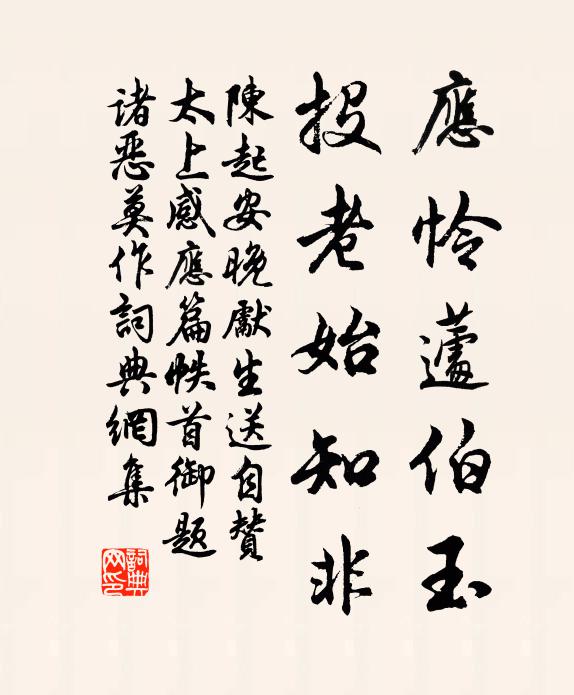 應怜蘧伯玉
投老始知非
陳起安晚獻生送自贊
太上感應篇帙首御题
諸惡莫作詞典網集
詞典网印